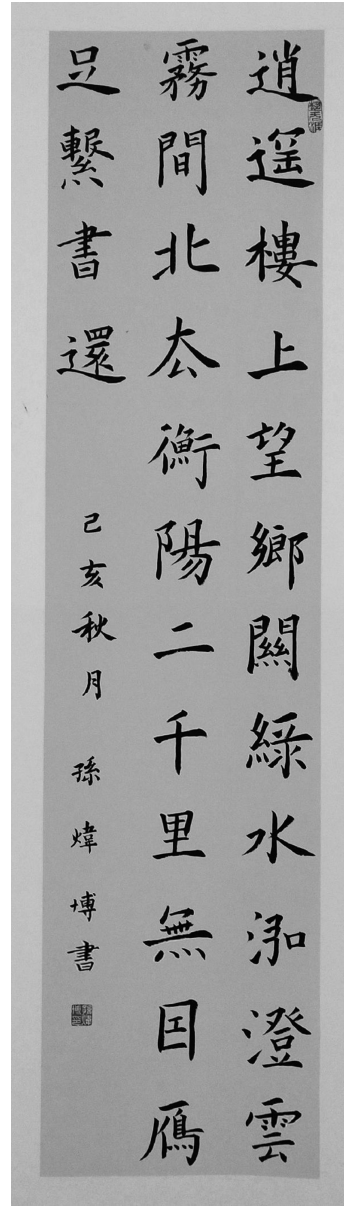 逍遥樓上望鄉關緑水泓澄雲
霧間北厺衡陽二千里無囙鴈
足繫書還
己亥秋月 孫煒博書